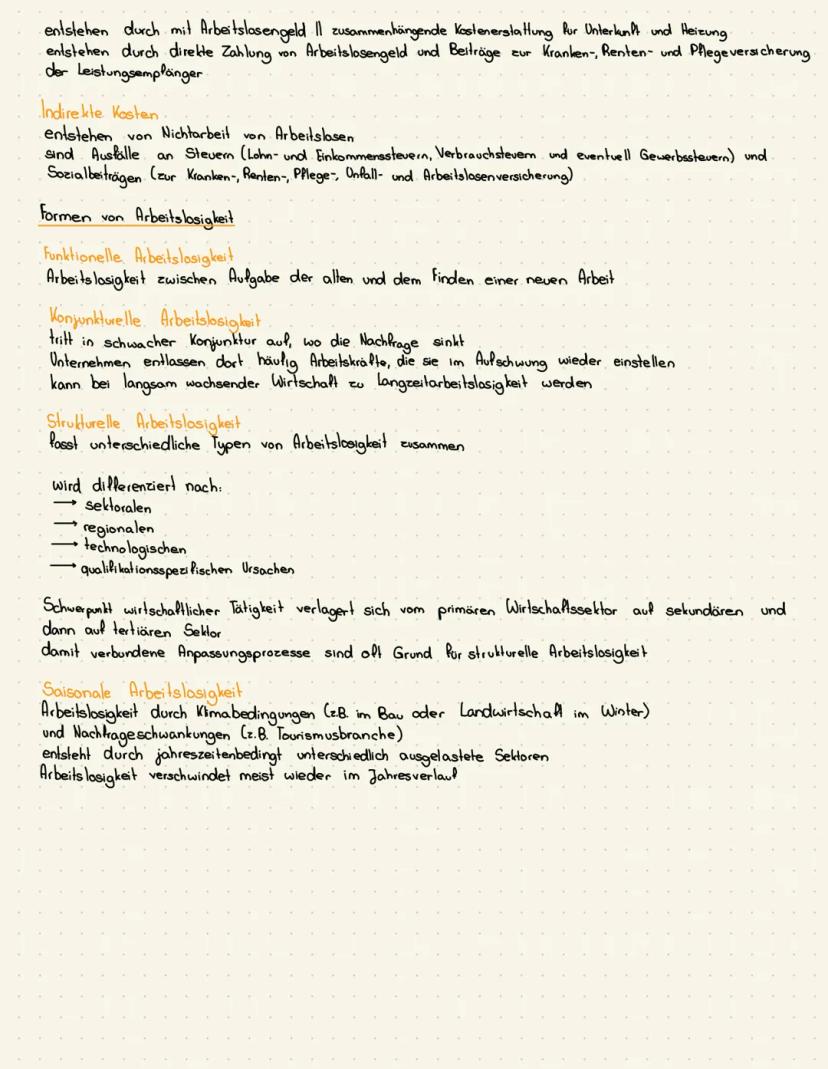 entstehen durch mit Arbeitslosengeld II zusammenhängende Kostenerstattung für Unterkunft und Heizung
entstehen durch direkte Zahlung von Arbeitslosengeld und Beiträge zur Kranken-, Renten- und Pflegeversicherung
der Leistungsempfänger
Indirekte Kosten
entstehen von Nichtarbeit von Arbeitslosen
sind Ausfälle an Steuern (Lohn- und Einkommenssteuern, Verbrauchsteuern und eventuell Gewerbssteuern) und
Sozialbeiträgen (zur Kranken-, Renten-, Pflege-, Unfall- und Arbeitslosenversicherung)
Formen von Arbeitslosigkeit
Funktionelle Arbeitslosigkeit
Arbeitslosigkeit zwischen Aufgabe der alten und dem Finden einer neuen Arbeit
Konjunkturelle Arbeitslosigkeit
tritt in schwacher Konjunktur auf, wo die Nachfrage sinkt
Unternehmen entlassen dort häufig Arbeitskräfte, die sie im Aufschwung wieder einstellen
kann bei langsam wachsender Wirtschaft zu Langzeitarbeitslosigkeit werden
Strukturelle Arbeitslosigkeit
fasst unterschiedliche Typen von Arbeitslosigkeit zusammen
wird differenziert nach:
→ sektoralen
→ regionalen
→ technologischen
→ qualifikationsspezifischen Ursachen
Schwerpunkt wirtschaftlicher Tätigkeit verlagert sich vom primären Wirtschaftssektor auf sekundären und
dann auf tertiären Sektor
damit verbundene Anpassungsprozesse sind oft Grund für strukturelle Arbeitslosigkeit
Saisonale Arbeitslosigkeit
Arbeitslosigkeit durch Klimabedingungen (z.B. im Bau oder Landwirtschaft im Winter)
und Nachfrageschwankungen (z.B. Tourismusbranche)
entsteht durch jahreszeitenbedingt unterschiedlich ausgelastete Sektoren
Arbeitslosigkeit verschwindet meist wieder im Jahresverlauf